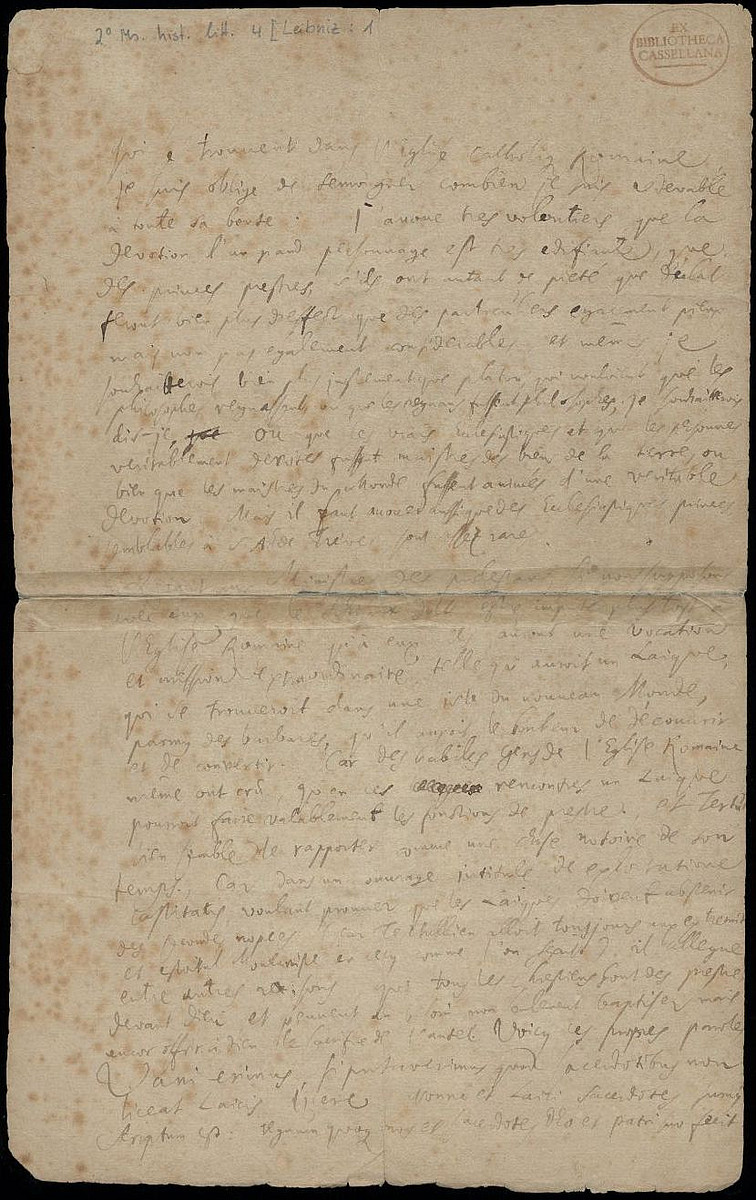 2° Ms. hist. litt. 4 [Leibniz: 1
EX
BIBLIOTHECA
CASSELLANA
qui se trouvent dans l'Eglise Catholiq Romaine
Je suis obligé de temoigner combien je suis redevable
à toute sa bonté. J'avoue tres volontiers que la
devotion d'un grand personnage est tres edifiante, que
des princes prestres, s'ils ont autant de pieté que d'éclat
feront bien plus d'effect que des particuliers egalement pieux
mais non pas egalement considerables et même je
souhaitterois bien plus que Platon qui vouloit que les
philosophes regnassent, ou que les regnans fussent philosophes, je souhaitterois
dis-je, ou que les vrais Ecclesiastiques et que les personnes
veritablement devotes fussent maistres des biens de la terre, ou
bien que les maistres du Monde fussent animés d'une veritable
devotion. Mais il faut avouer aussi que des Ecclesiastiques princes
semblables à S. A. de Treves sont assez rares.
Ministres des
avec eux, que le plus tost à
l'Eglise Romaine qu'à eux, ils auront une vocation
et mission extraordinaire, telle qu'auroit un Laique,
qui se trouveroit dans une isle du nouveau Monde,
parmy des barbares, qu'il auroit le bonheur de découvrir
et de convertir. Car des habiles Gens de l'Eglise Romaine
même ont crû, qu'en ces rencontres un Laique
pourroit faire valablement les fonctions de prestre, et Tertullien
semble de rapporter comme une chose notoire de son
temps. Car dans un ouvrage intitulé de exhortatione
Castitatis voulant prouver que les Laiques doivent s'abstenir
des secondes nopces (car Tertullien alloit tousjours aux extremités
et estoit Montaniste en cecy comme l'on sçait), il allegue
entre autres raisons que tous les Chrestiens sont des prestres
devant Dieu et peuvent non seulement baptiser mais
encor offrir à Dieu le sacrifice de l'autel. Voicy ses propres paroles
Vani erimus, si putaverimus quod sacerdotibus non
liceat Laicis licere. Nonne et Laici sacerdotes sumus
Scriptum est: regnum quoque nos et sacerdotes Deo et patri suo fecit